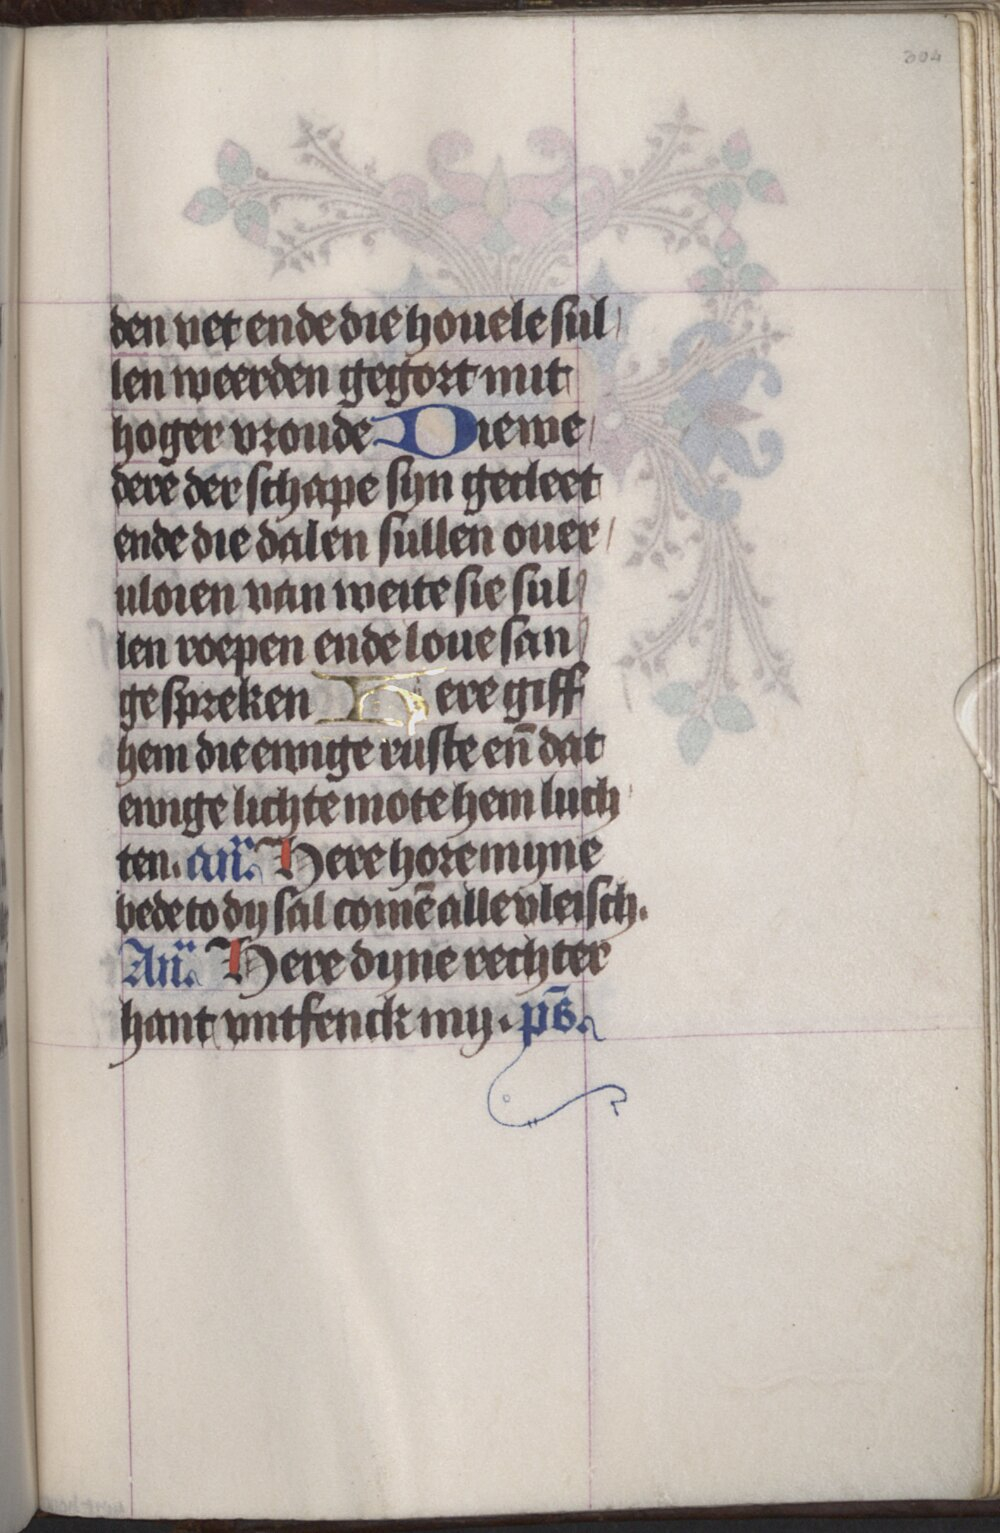 304
den vet ende die houele sul/
len weerden gegort mit
hoger vroude Die we/
dere der schape syn gecleet
ende die dalen sullen ouer/
uloien van weite sie sul/
len roepen ende loue san/
ge spreken Here giff
hem die ewige ruste en̄ dat
ewige lichte mote hem luch
ten. an̄. Here hore myne
bede to dy sal comē alle vleisch.
An̄. Here dyne rechter
hant vntfenck my. ps̄.